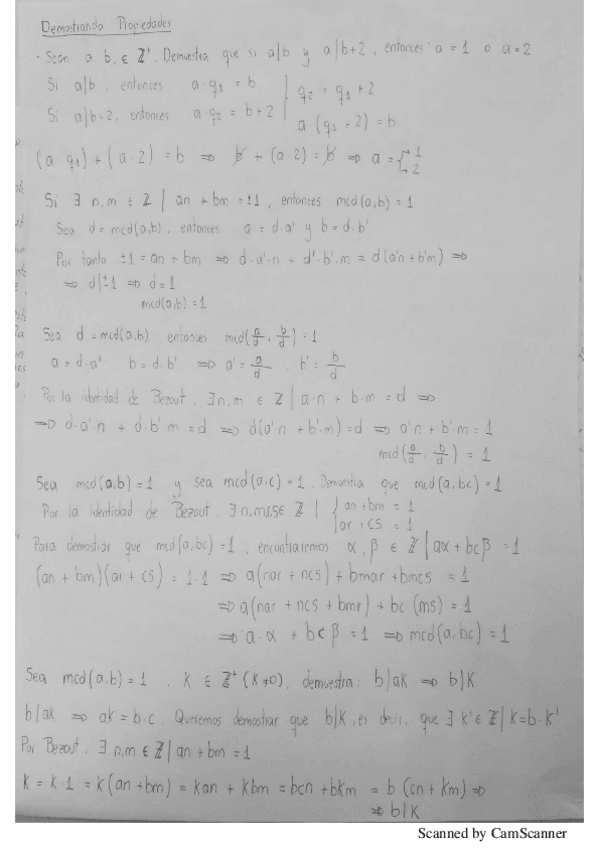 Demostrando Propiedades
· Sean a b, ∈ Z⁺. Demuestra que si a|b y a|b+2, entonces a = 1 o a = 2
Si a|b, entonces a·q₁ = b
Si a|b+2, entonces a·q₂ = b+2
q₂ = q₁ + 2
a·(q₁ + 2) = b
(a q₁) + (a·2) = b ⇒ b + (a·2) = b ⇒ a = { 1 2
Si ∃ n,m ∈ Z | an + bm = ±1, entonces mcd(a,b) = 1
Sea d = mcd(a,b), entonces a = d·a' y b = d·b'
Por tanto ±1 = an + bm ⇒ d·a'·n + d'·b'·m = d(a'n + b'm) ⇒
⇒ d|±1 ⇒ d = 1
mcd(a,b) = 1
Sea d = mcd(a,b) entonces mcd(a/d, b/d) = 1
a = d·a' b = d·b' ⇒ a' = a/d . b' = b/d
Por la identidad de Bezout. ∃ n,m ∈ Z | a·n + b·m = d ⇒
⇒ d·a'·n + d·b'·m = d ⇒ d(a'·n + b'·m) = d ⇒ a'n + b'·m = 1
mcd(a/d, b/d) = 1
Sea mcd(a,b) = 1 y sea mcd(a,c) = 1. Demuestra que mcd(a,bc) = 1
Por la identidad de Bezout. ∃ n,m,r,s ∈ Z | { an + bm = 1
ar + cs = 1
Para demostrar que mcd(a,bc) = 1, encontraremos α, β ∈ Z | aα + bcβ = 1
(an + bm)(ar + cs) = 1·1 ⇒ a(nar + ncs) + bmar + bmcs = 1
⇒ a(nar + ncs + bmr) + bc(ms) = 1
⇒ a·α + bcβ = 1 ⇒ mcd(a,bc) = 1
Sea mcd(a,b) = 1 . K ∈ Z⁺ (K≠0), demuestra: b|aK ⇒ b|K
b|aK ⇒ aK = b·c. Queremos demostrar que b|K, es decir, que ∃ K' ∈ Z | K = b·K'
Por Bezout. ∃ n,m ∈ Z | an + bm = 1
K = K·1 = K(an + bm) = Kan + Kbm = bcn + bKm = b(cn + Km) ⇒
⇒ b|K
Scanned by CamScanner